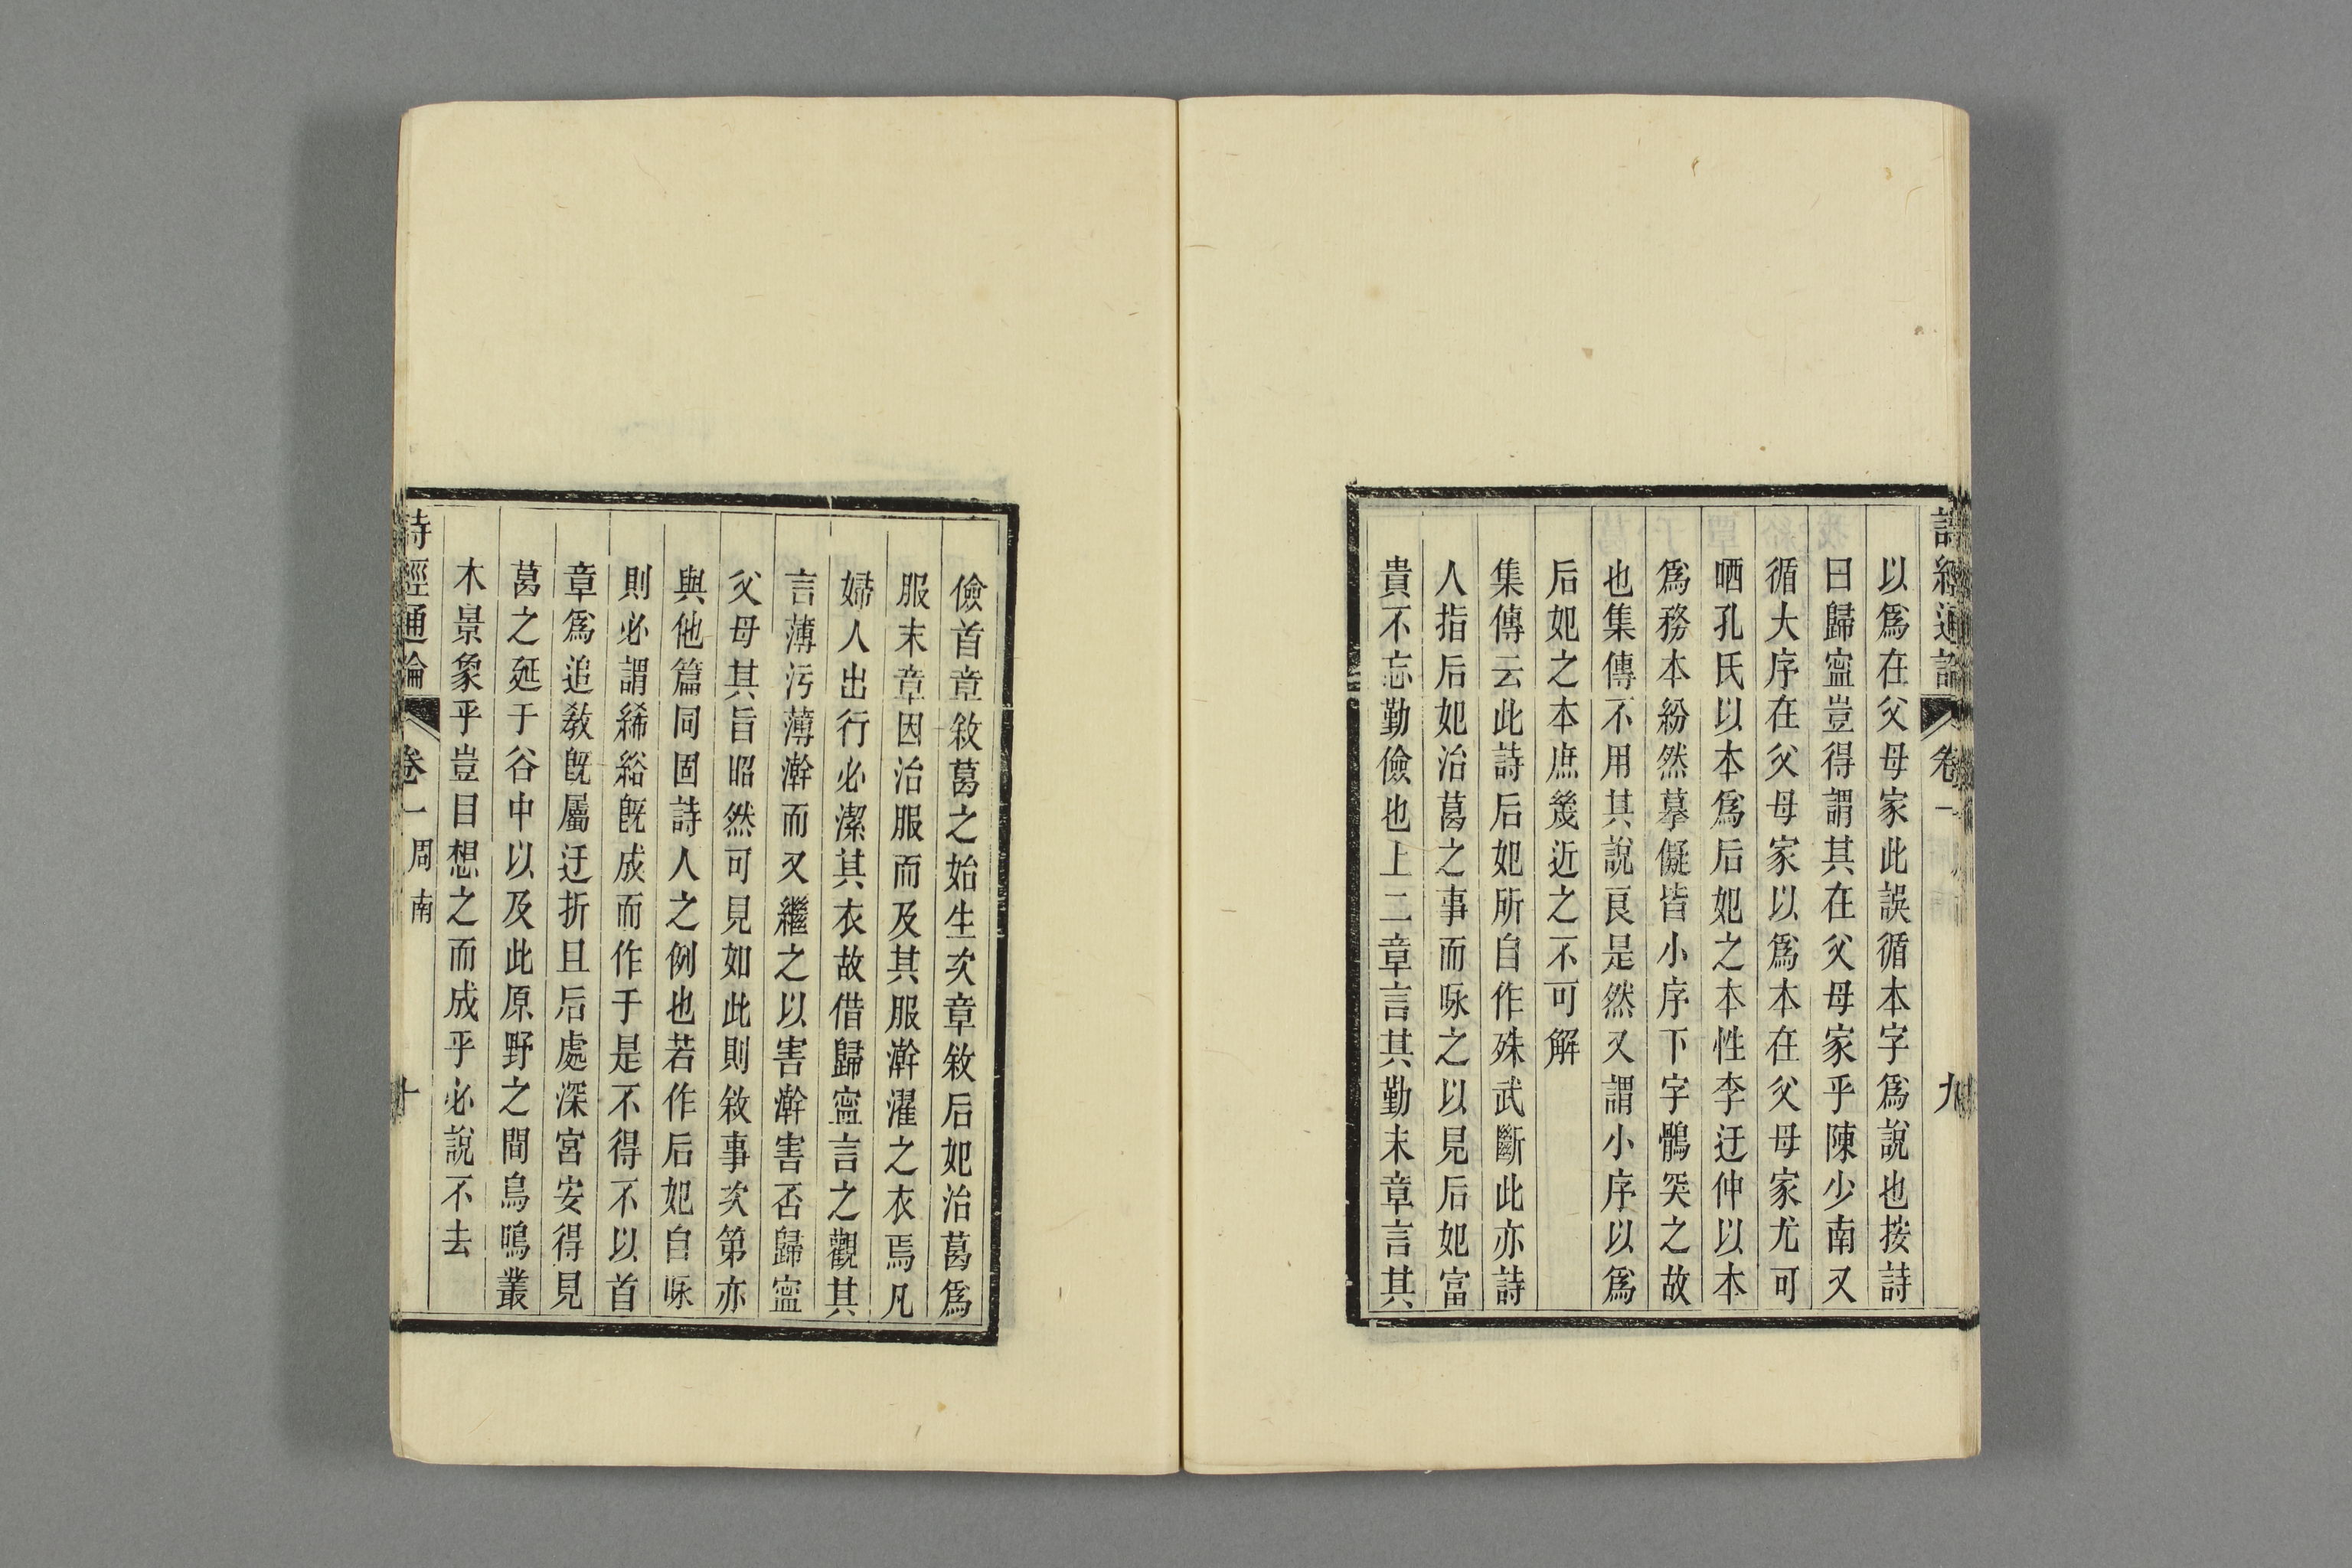 詩經通論 卷一 九
以爲在父母家此誤循本字爲說也按詩
曰歸寍豈得謂其在父母家乎陳少南又
循大序在父母家以爲本在父母家尤可
哂孔氏以本爲后妃之本性李迂仲以本
爲務本紛然摹儗皆小序下字鶻突之故
也集傳不用其說良是然又謂小序以爲
后妃之本庶幾近之不可解
集傳云此詩后妃所自作殊武斷此亦詩
人指后妃治葛之事而咏之以見后妃富
貴不忘勤儉也上二章言其勤末章言其
儉首章敘葛之始生次章敘后妃治葛爲
服末章因治服而及其服澣濯之衣焉凡
婦人出行必潔其衣故借歸寍言之觀其
言薄污薄澣而又繼之以害澣害否歸寍
父母其旨昭然可見如此則敘事次第亦
與他篇同固詩人之例也若作后妃自咏
則必謂絺綌旣成而作于是不得不以首
章爲追敘旣屬迂折且后處深宮安得見
葛之延于谷中以及此原野之間鳥鳴叢
木景象乎豈目想之而成乎必說不去
詩經通論 卷一 周南 十